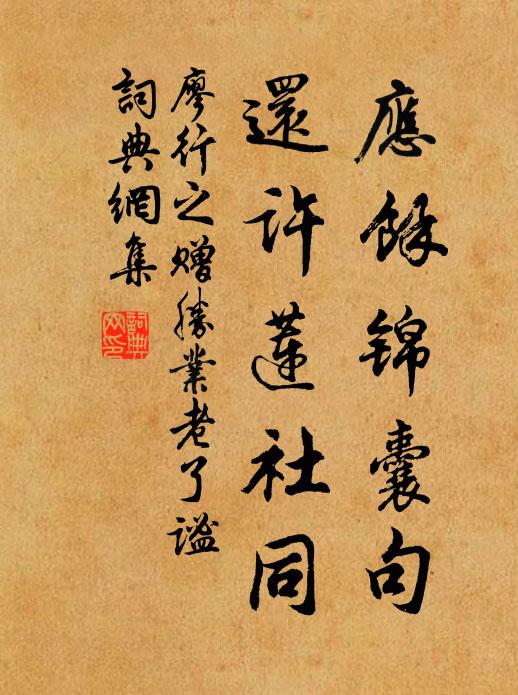 應餘錦囊句
還許蓮社同
廖行之贈勝業老了謐
詞典網集